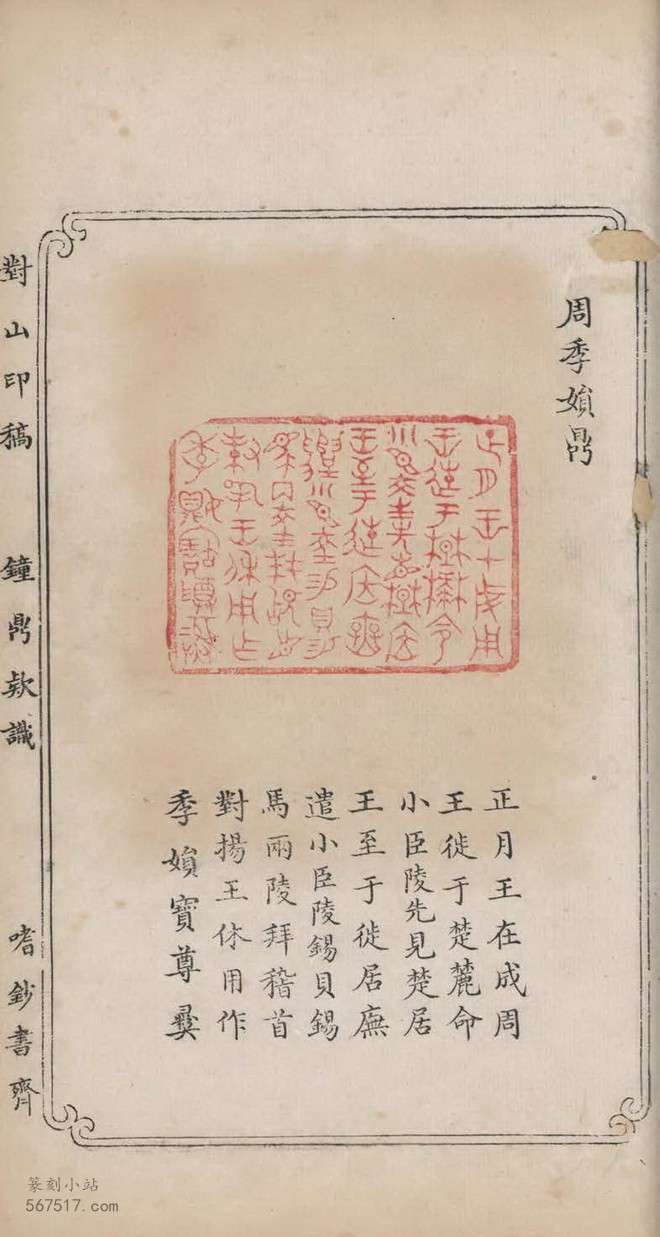 周季媜鼎
正月王在成周
王徙于楚麓命
小臣陵先見楚居
王至于徙居廡
遣小臣陵錫貝錫
馬兩陵拜稽首
對揚王休用作
季媜寶尊彝
對山印稿 鐘鼎欵識 嗜鈔書齋
篆刻小站
567517.com